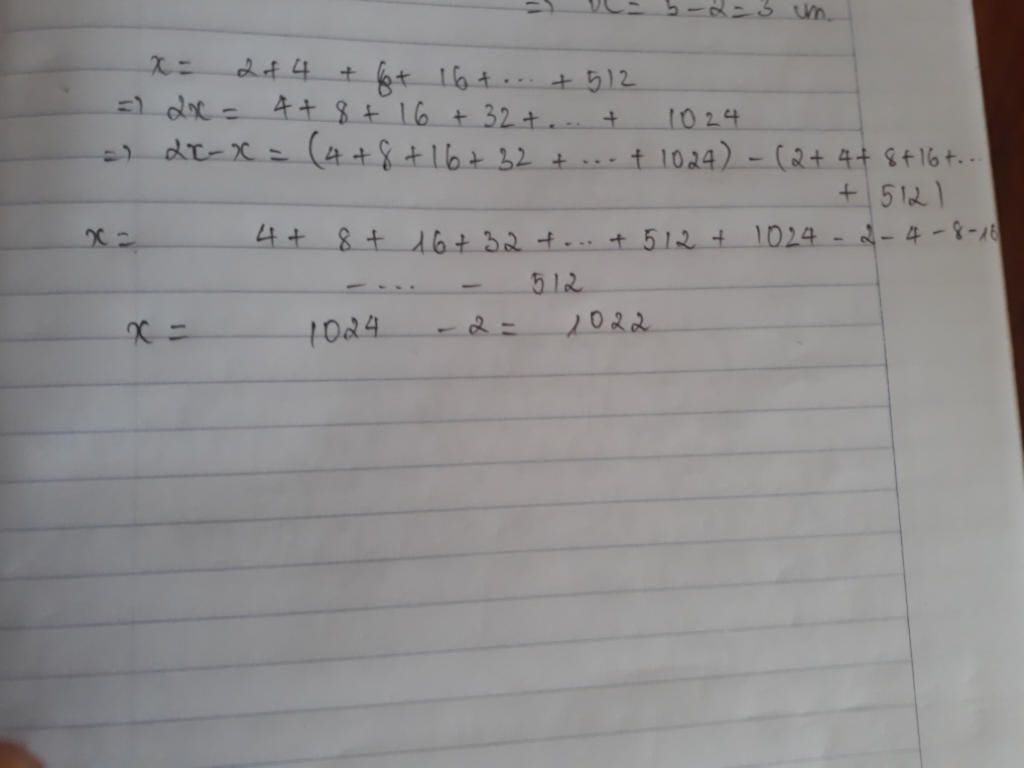 => x = 5-2 = 3 cm.
x = 2+4 + 8+ 16+ ... + 512
=> 2x = 4+ 8+ 16 + 32+ ... + 1024
=> 2x-x = (4+8+16+32 + ... + 1024) - (2+ 4+ 8+16+...
+ 512)
x = 4+ 8+ 16+32 + ... + 512 + 1024 - 2 - 4 - 8 - 16
- ... - 512
x = 1024 - 2 = 1022